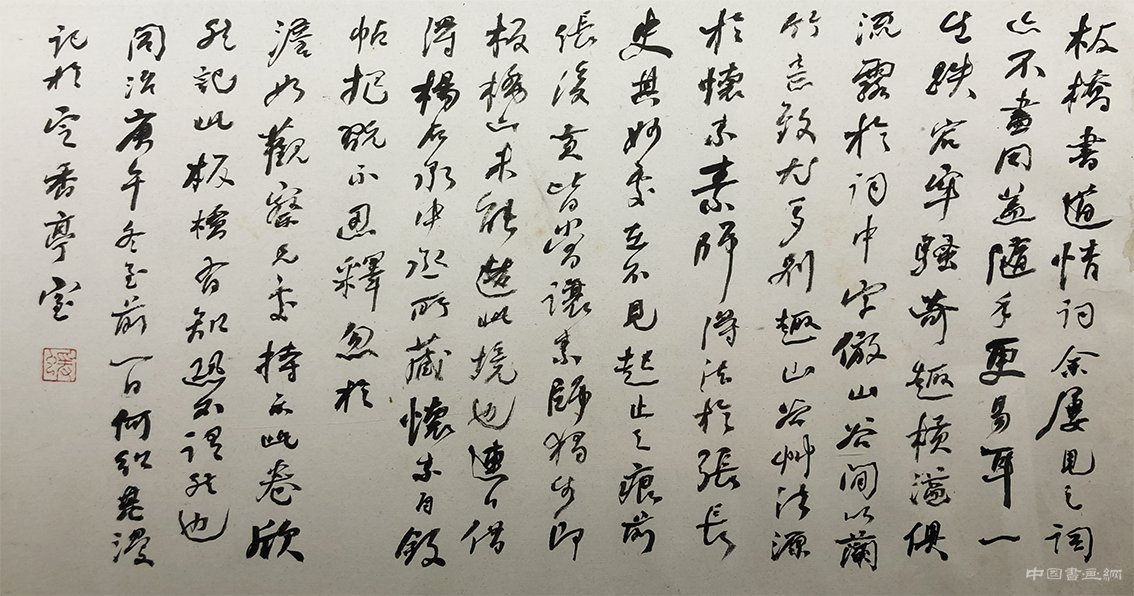 板橋書道情詞余屢見之詞
亦不盡同蓋隨手更易耳一
生跌宕牢騷奇趣橫溢俱
流露於詞中字仿山谷間以蘭
竹意致尤爲別趣山谷草法源
於懷素素師得法於張長
史其妙處在不見起止之痕前
張後黃皆當讓素師獨步即
板橋亦未能造此境也連日借
得楊石卿中丞所藏懷素自敘
帖把玩不忍釋忽於
濠叟觀察兄處持示此卷欣
然記此板橋有知恐不謂然也
同治庚午冬至前一日何紹基漫
記於定香亭室
中国書画網